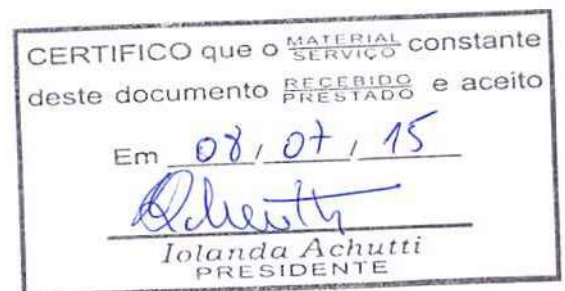 CERTIFICO que o MATERIAL SERVIÇO constante
deste documento RECEBIDO PRESTADO e aceito
Em 08, 07, 15
Iolanda Achutti
PRESIDENTE